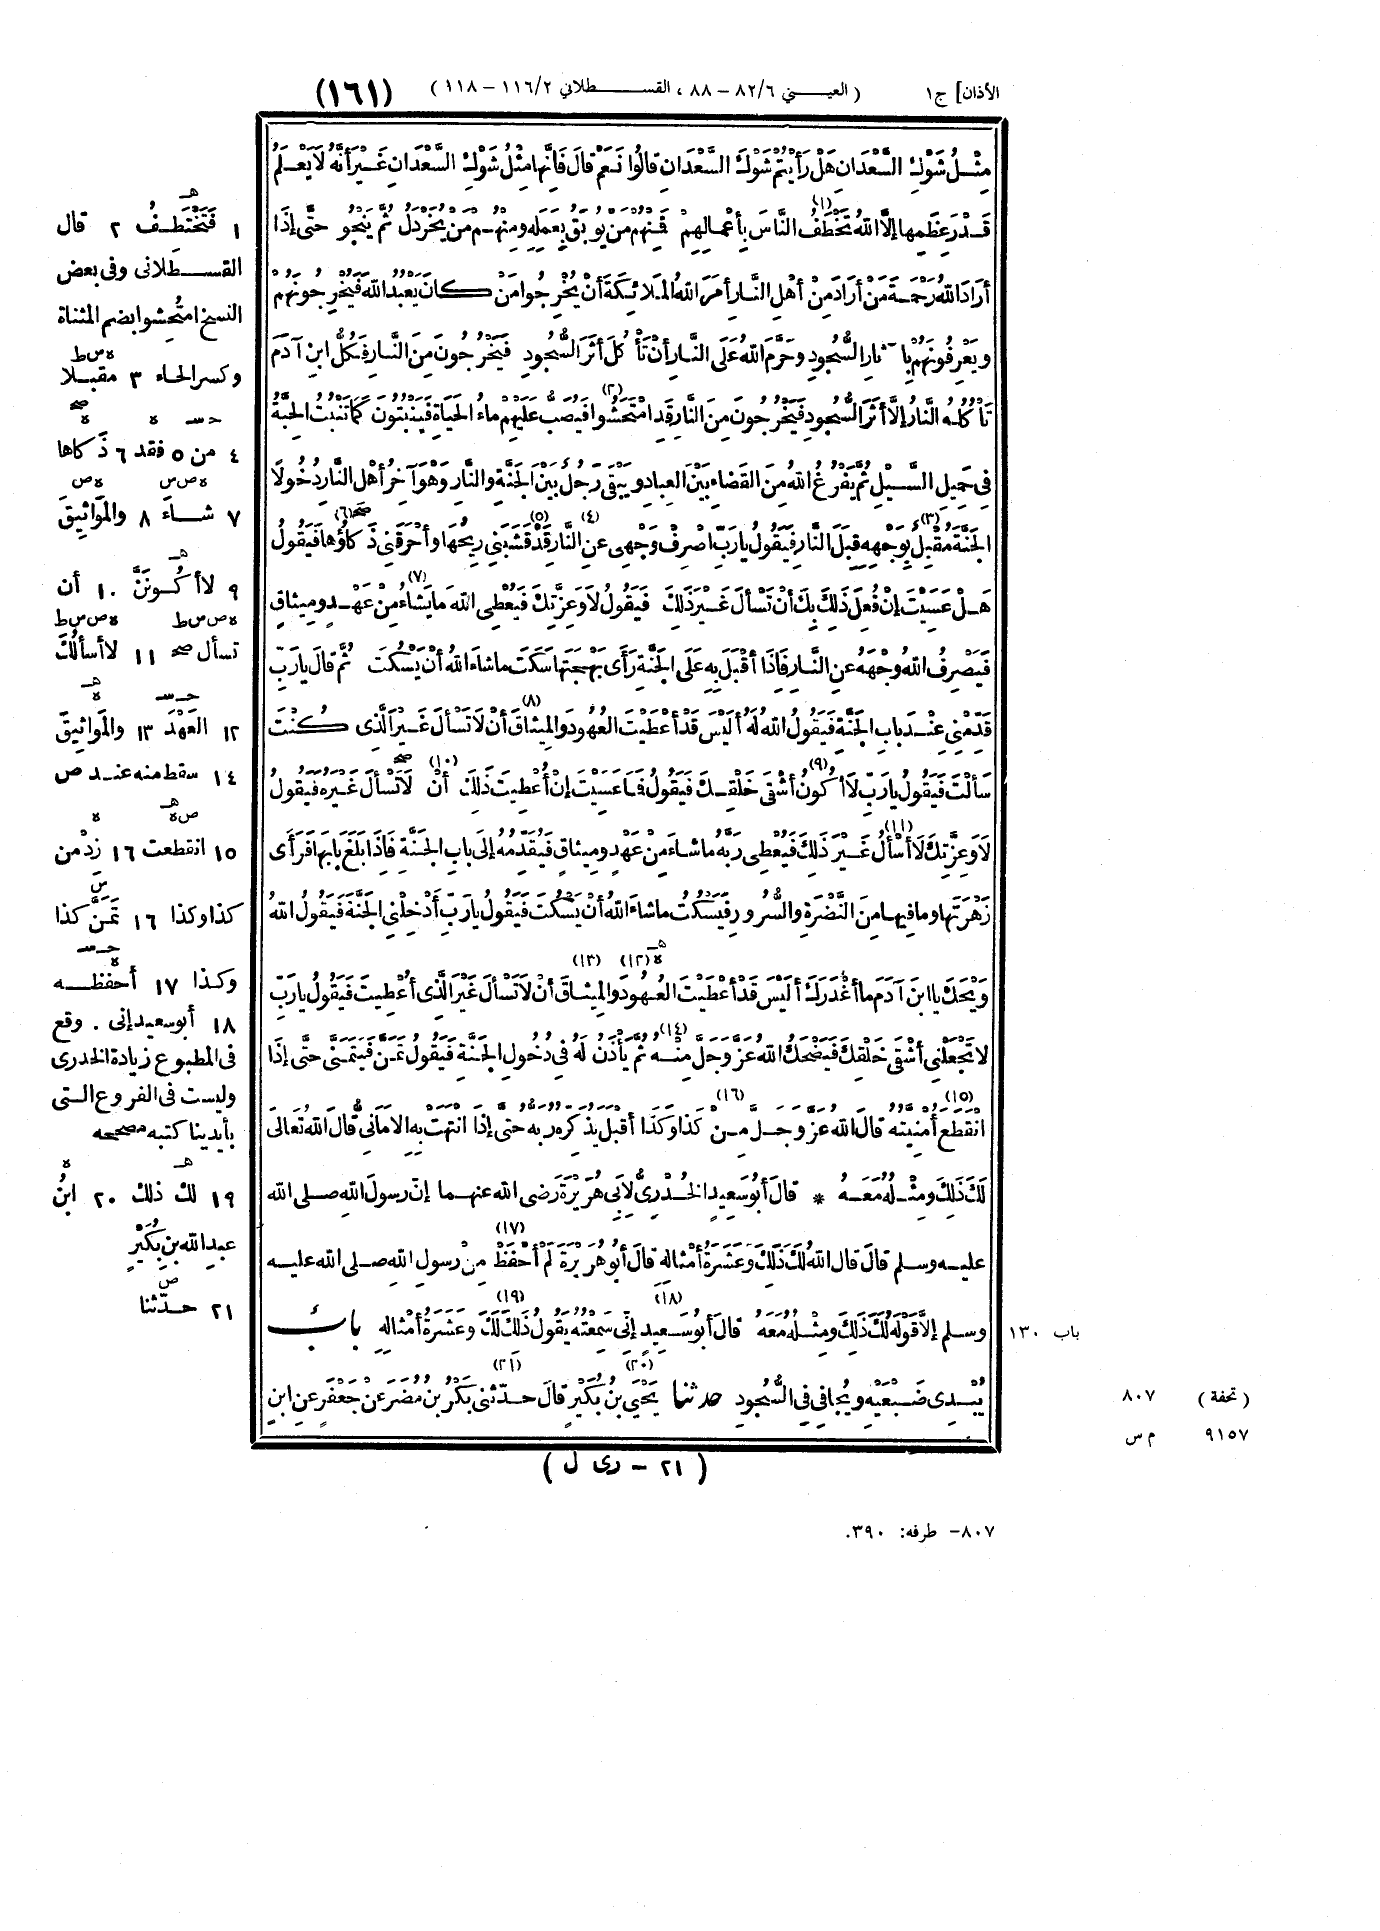 الأذان] ج١ (العيني ٨٢/٦ – ٨٨، القسطلاني ١١٦/٢ – ١١٨) (١٦١)
مِثْلُ شَوْكِ السَّعْدَانِ هَلْ رَأَيْتُمْ شَوْكَ السَّعْدَانِ قالُوا نَعَمْ قالَ فَإِنَّها مِثْلُ شَوْكِ السَّعْدَانِ غَيْرَ أَنَّهُ لَا يَعْلَمُ
قَدْرَ عِظَمِها إِلَّا اللهُ تَخْطَفُ (١) النَّاسَ بِأَعْمالِهِمْ فَمِنْهُمْ مَنْ يُوبَقُ بِعَمَلِهِ ومِنْهُمْ مَنْ يُخَرْدَلُ ثُمَّ يَنْجُو حَتَّى إِذَا
أرَادَ اللهُ رَحْمَةَ مَنْ أَرَادَ مِنْ أهْلِ النَّارِ أمَرَ اللهُ المَلَائِكَةَ أنْ يُخْرِجُوا مَنْ كانَ يَعْبُدُ اللهَ فَيُخْرِجُونَهُمْ
ويَعْرِفُونَهُمْ بِآثارِ السُّجُودِ وحَرَّمَ اللهُ عَلَى النَّارِ أنْ تَأْكُلَ أثَرَ السُّجُودِ فَيَخْرُجُونَ مِنَ النَّارِ فَكُلُّ ابنِ آدَمَ
تَأْكُلُهُ النَّارُ إلَّا أثَرَ السُّجُودِ فَيَخْرُجُونَ مِنَ النَّارِ قَدِ امْتَحَشُوا (٢) فَيُصَبُّ عَلَيْهِمْ ماءُ الحَيَاةِ فَيَنْبُتُونَ كَمَا تَنْبُتُ الحِبَّةُ
فِي حَمِيلِ السَّيْلِ ثُمَّ يَفْرُغُ اللهُ مِنَ القَضاءِ بَيْنَ العِبادِ ويَبْقَى رَجُلٌ بَيْنَ الجَنَّةِ والنَّارِ وهْوَ آخِرُ أهْلِ النَّارِ دُخُولًا
الجَنَّةَ مُقْبِلٌ (٣) بِوَجْهِهِ قِبَلَ النَّارِ فَيَقُولُ يا رَبِّ اصْرِفْ وَجْهِي عنِ (٤) النَّارِ قَدْ (٥) قَشَبَنِي رِيحُهَا وأحْرَقَنِي ذَكاؤُها (٦) صح فَيَقُولُ
هَلْ عَسَيْتَ إنْ فُعِلَ ذَلِكَ بِكَ أنْ تَسْأَلَ غَيْرَ ذَلِكَ فَيَقُولُ لَا وَعِزَّتِكَ فَيُعْطِي اللهَ مَا يَشاءُ (٧) مِنْ عَهْدٍ ومِيثاقٍ
فَيَصْرِفُ اللهُ وجْهَهُ عنِ النَّارِ فَإذَا أقْبَلَ بِهِ عَلَى الجَنَّةِ رَأَى بَهْجَتَها سَكَتَ ما شاءَ اللهُ أنْ يَسْكُتَ ثُمَّ قالَ يا رَبِّ
قَدِّمْنِي عِنْدَ بابِ الجَنَّةِ فَيَقُولُ اللهُ لَهُ أَلَيْسَ قَدْ أعْطَيْتَ العُهُودَ والمِيثاقَ (٨) أنْ لَا تَسْأَلَ غَيْرَ الَّذِي كُنْتَ
سَأَلْتَ فَيَقُولُ يا رَبِّ لَا أكُونُ (٩) أشْقَى خَلْقِكَ فَيَقُولُ فَمَا عَسَيْتَ إنْ أُعْطِيتَ ذَلِكَ أنْ (١٠) لَا صح تَسْأَلَ غَيْرَهُ فَيَقُولُ
لَا وَعِزَّتِكَ لَا أسْأَلُ (١١) غَيْرَ ذَلِكَ فَيُعْطِي رَبَّهُ ما شاءَ مِنْ عَهْدٍ ومِيثاقٍ فَيُقَدِّمُهُ إلَى بابِ الجَنَّةِ فَإِذَا بَلَغَ بابَها فَرَأَى
زَهْرَتَها وما فِيها مِنَ النَّضْرَةِ والسُّرُورِ فَيَسْكُتُ ما شاءَ اللهُ أنْ يَسْكُتَ فَيَقُولُ يا رَبِّ أدْخِلْنِي الجَنَّةَ فَيَقُولُ اللهُ
وَيْحَكَ يا ابنَ آدَمَ ما أغْدَرَكَ ألَيْسَ قَدْ أعْطَيْتَ العُهُودَ (١٢) والمِيثاقَ (١٣) أنْ لَا تَسْأَلَ غَيْرَ الَّذِي أُعْطِيتَ فَيَقُولُ يا رَبِّ
لا تَجْعَلْنِي أشْقَى خَلْقِكَ فَيَضْحَكُ اللهُ عَزَّ وَجَلَّ مِنْهُ (١٤) ثُمَّ يَأْذَنُ لَهُ فِي دُخُولِ الجَنَّةِ فَيَقُولُ تَمَنَّ فَيَتَمَنَّى حَتَّى إذَا
انْقَطَعَ (١٥) أُمْنِيَّتُهُ قالَ اللهُ عَزَّ وَجَلَّ مِنْ (١٦) كَذَا وكَذَا أقْبَلَ يُذَكِّرُهُ رَبُّهُ حَتَّى إذَا انْتَهَتْ بِهِ الأمَانِيُّ قَالَ اللهُ تَعَالَى
لَكَ ذَلِكَ ومِثْلُهُ مَعَهُ * قالَ أبُو سَعِيدٍ الخُدْرِيُّ لِأَبِي هُرَيْرَةَ رَضِيَ الله عنهما إنّ رسولَ اللهِ صلى الله
عليه وسلم قالَ قالَ اللهُ لَكَ ذَلِكَ وعَشَرَةُ أمْثالِهِ قالَ أبُو هُرَيْرَةَ لَمْ أحْفَظْ (١٧) مِنْ رسولِ اللهِ صلى الله عليه
وسلم إلَّا قَوْلَهُ لَكَ ذَلِكَ ومِثْلُهُ مَعَهُ قالَ أبُو سَعِيدٍ (١٨) إنِّي سَمِعْتُهُ يقُولُ ذَلِكَ لَكَ (١٩) وعَشَرَةُ أمْثالِهِ بابٌ
يُبْدِي ضَبْعَيْهِ ويُجافِي فِي السُّجُودِ حدثنا يَحْيَى بنُ بُكَيْرٍ (٢٠) قالَ حدّثني (٢١) بَكْرُ بنُ مُضَرَ عنْ جَعْفَرٍ عنِ ابنِ
(٢١ – رى ل)
١ فَتَخْتَطِفُ ٢ قال
القسطلانى وفى بعض
النسخ امتُحِشوا بضم المثناة
وكسر الحاء ٣ مقبلا
٤ من ٥ فقد ٦ ذَكاها
٧ شاءَ ٨ والمَوَاثِيقَ
٩ لا أكُونَنَّ ١٠ أن
تسأل صح ١١ لا أسألُكَ
١٢ العَهْدَ ١٣ والمَوَاثِيقَ
١٤ سقط منه عند ص
١٥ انقطعت ١٦ زِدْ من
كذا وكذا ١٦ تَمَنَّ كذا
وكذا ١٧ أحفظه
١٨ أبو سعيد إنى. وقع
فى المطبوع زيادة الخدرى
وليست فى الفروع التى
بأيدينا كتبه مصححه
١٩ لك ذلك ٢٠ ابنُ
عبدِ الله بنِ بُكَيْرٍ
٢١ حدّثنا
باب ١٣٠
(تحفة) ٨٠٧
٩١٥٧ م س
٨٠٧– طرفه: ٣٩٠.